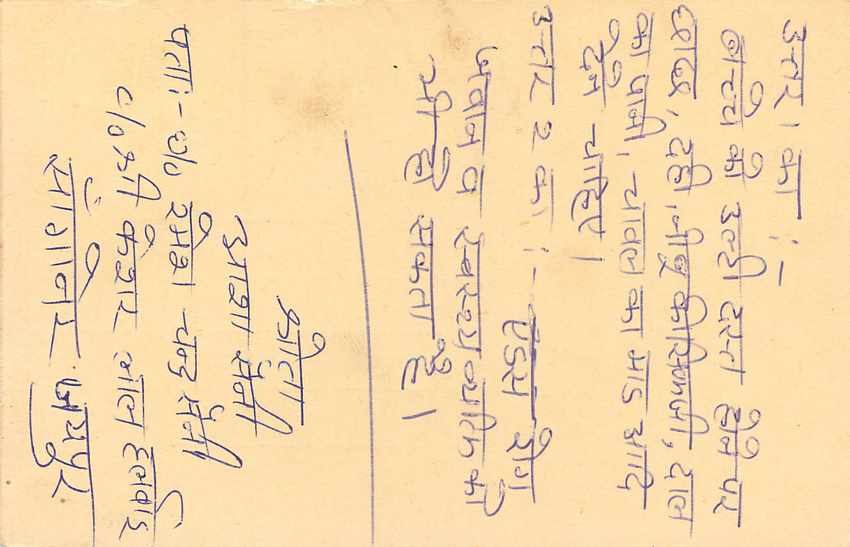 उत्तर 1 का :-
बच्चे को उल्टी दस्त होने पर
छाछ, दही, नीबू की शिकंजी, दाल
का पानी, चावल का माड आदि
देने चाहिए।
उत्तर 2 का :- एडस रोग
जवान व स्वस्थ्य व्यक्ति को
भी हो सकता है।
श्रोता
आशा सैनी
पता :- c/o रमेश चन्द सैनी
c/o श्री केशर लाल
सांगानेर जयपुर